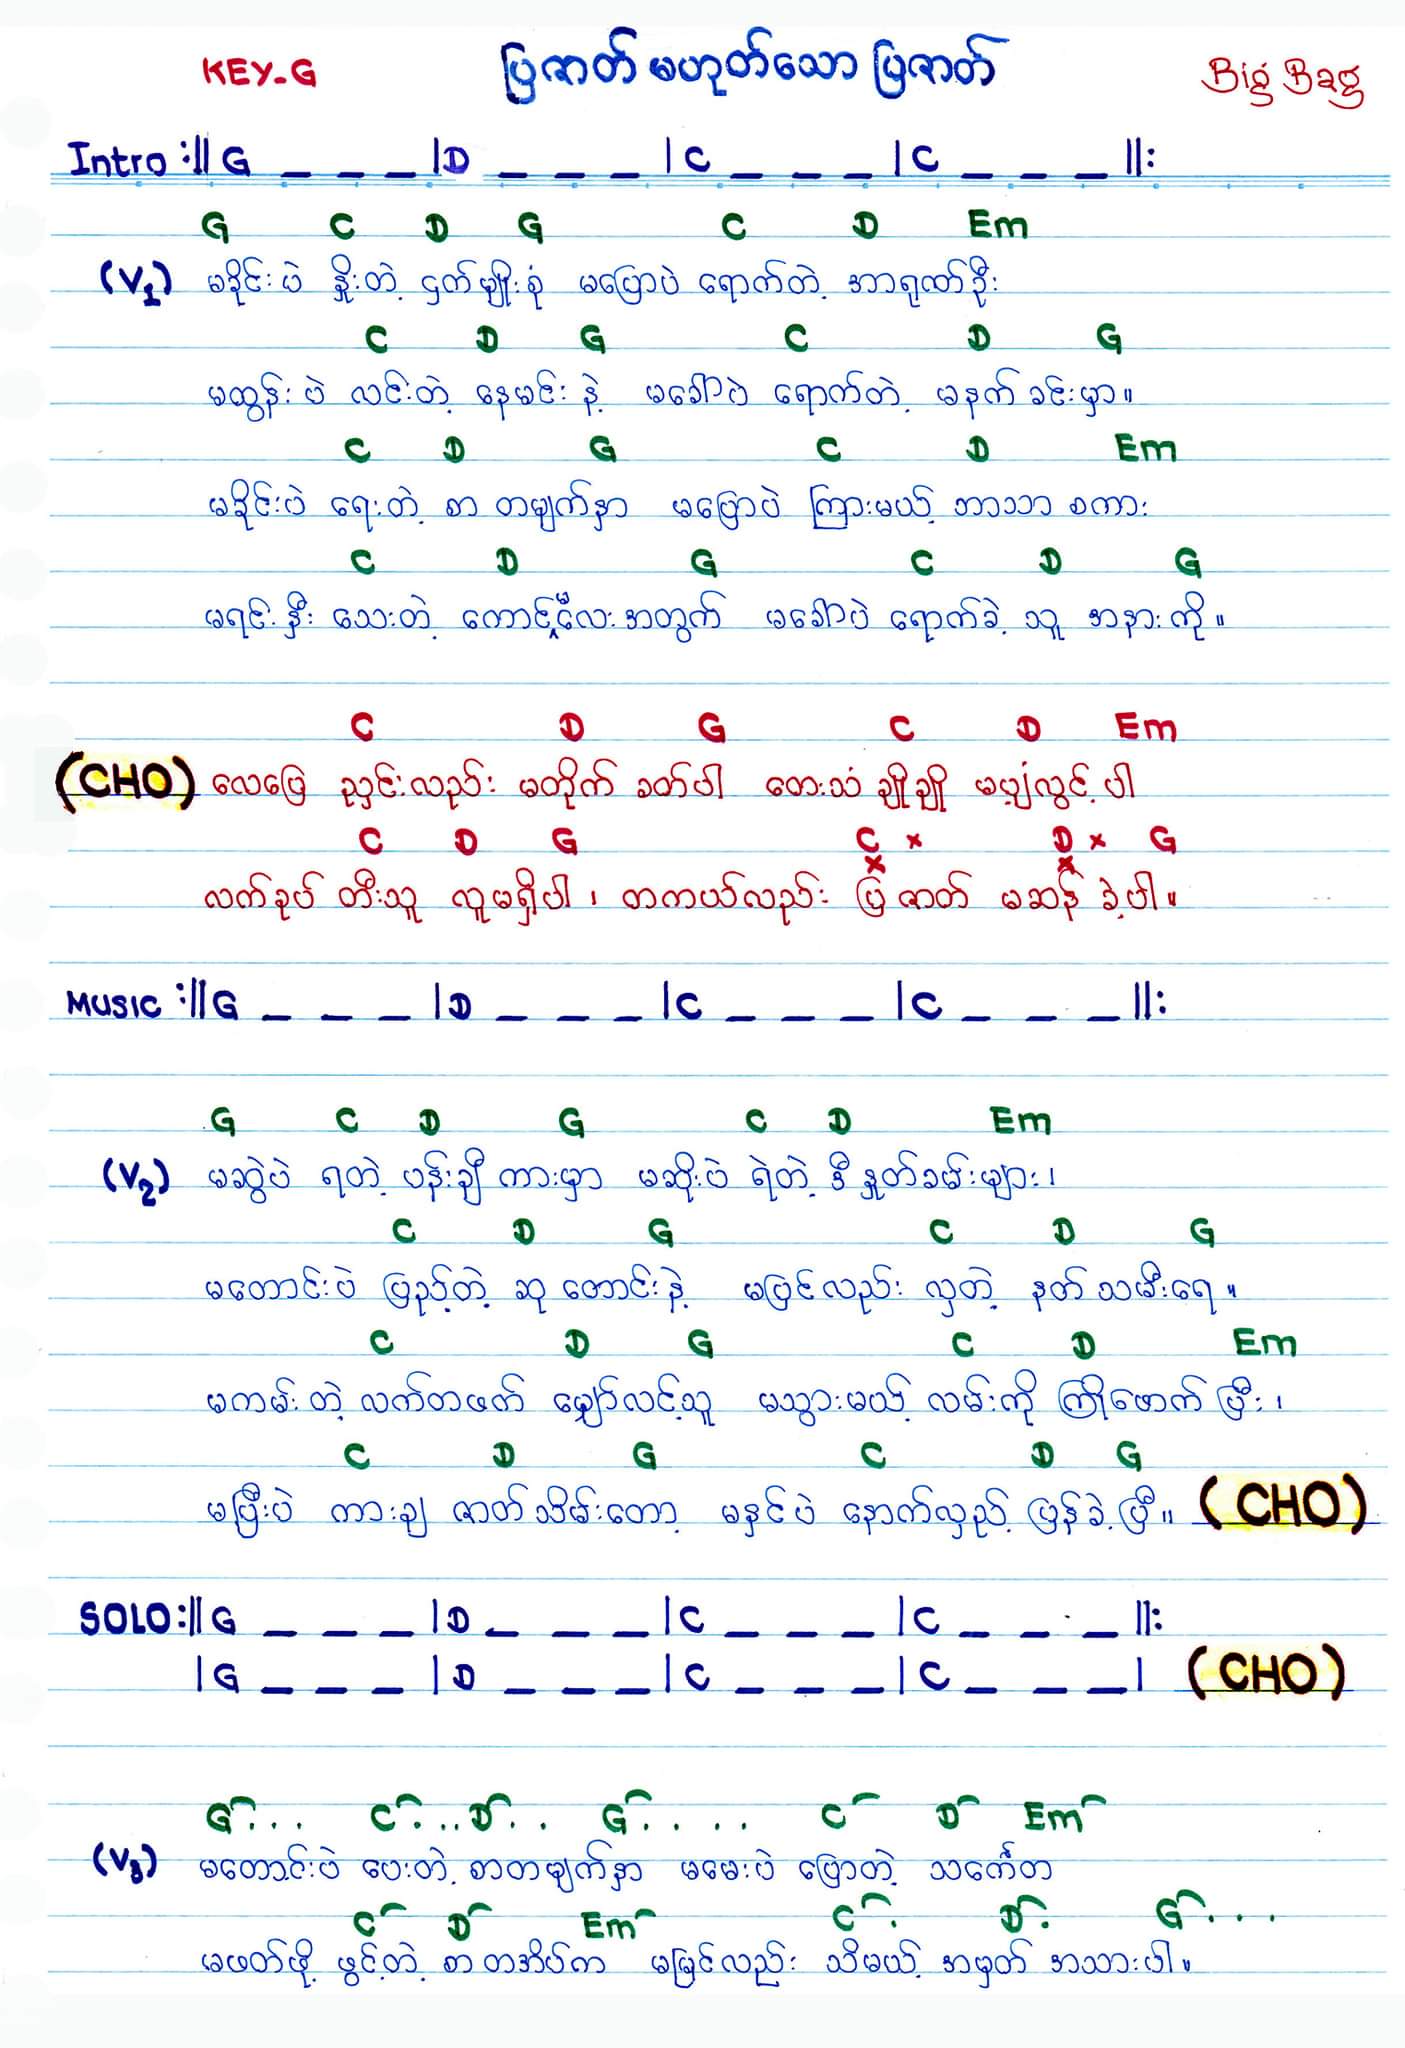 KEY-G ပြဇာတ် မဟုတ်သော ပြဇာတ် Big Bag
Intro :|| G _ _ _ | D _ _ _ | C _ _ _ | C _ _ _ ||:
G C D G C D Em
(V1) မခိုင်းပဲ နှိုးတဲ့ ငှက်မျိုးစုံ မပြောပဲ ရောက်တဲ့ အာရုဏ်ဦး
C D G C D G
မထွန်းပဲ လင်းတဲ့ နေမင်းနဲ့ မခေါ်ပဲ ရောက်တဲ့ မနက်ခင်းမှာ။
C D G C D Em
မခိုင်းပဲ ရေးတဲ့ စာ တမျက်နှာ မပြောပဲ ကြားမယ့် ဘာသာ စကား
C D G C D G
မရင်းနှီး သေးတဲ့ ကောင်မလေးအတွက် မခေါ်ပဲ ရောက်ခဲ့ သူ အနားကို။
C D G C D Em
(CHO) လေပြေ ညှင်းလည်း မတိုက်ခတ်ပါ တေးသံ ချိုချို မပျံ့လွင့်ပါ
C D G C x D x G
x x
လက်ခုပ် တီးသူ လူမရှိပါ၊ တကယ်လည်း ပြဇာတ် မဆန်ခဲ့ပါ။
MUSIC :|| G _ _ _ | D _ _ _ | C _ _ _ | C _ _ _ ||:
G C D G C D Em
(V2) မဆွဲပဲ ရတဲ့ ပန်းချီကားမှာ မဆိုးပဲ ရဲတဲ့ ဒီနှုတ်ခမ်းများ၊
C D G C D G
မတောင်းပဲ ပြည့်တဲ့ ဆုတောင်းနဲ့ မပြင်လည်း လှတဲ့ နတ်သမီးရေ။
C D G C D Em
မကမ်းတဲ့ လက်တဖတ် မျှော်လင့်သူ မသွားမယ့် လမ်းကို ကြိုဖောက်ပြီး၊
C D G C D G
မပြီးပဲ ကားချ ဇာတ်သိမ်းတော့ မနှင်ပဲ နောက်လှည့် ပြန်ခဲ့ပြီ။ (CHO)
SOLO :|| G _ _ _ | D _ _ _ | C _ _ _ | C _ _ _ ||:
| G _ _ _ | D _ _ _ | C _ _ _ | C _ _ _ | (CHO)
G... C...D.. G.... C D Em
(V3) မတောင်းပဲ ပေးတဲ့ စာတမျက်နှာ မမေးပဲ ပြောတဲ့ သင်္ကေတ
C D Em C. D. G....
မဖတ်ဖို့ ဖွင့်တဲ့ စာတအိပ်က မမြင်လည်း သိမယ့် အမှတ် အသားပါ။